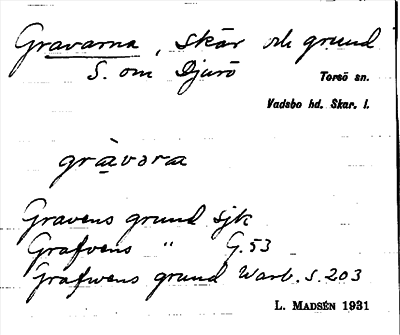 Gravarna, skär och grund
S. om Djurö
Torsö sn.
Vadsbo hd. Skar. l.
gràvara
Gravens grund sjk
Grafvens " G. 53
Grafwens grund Warb. s. 203
L. MADSÉN 1931